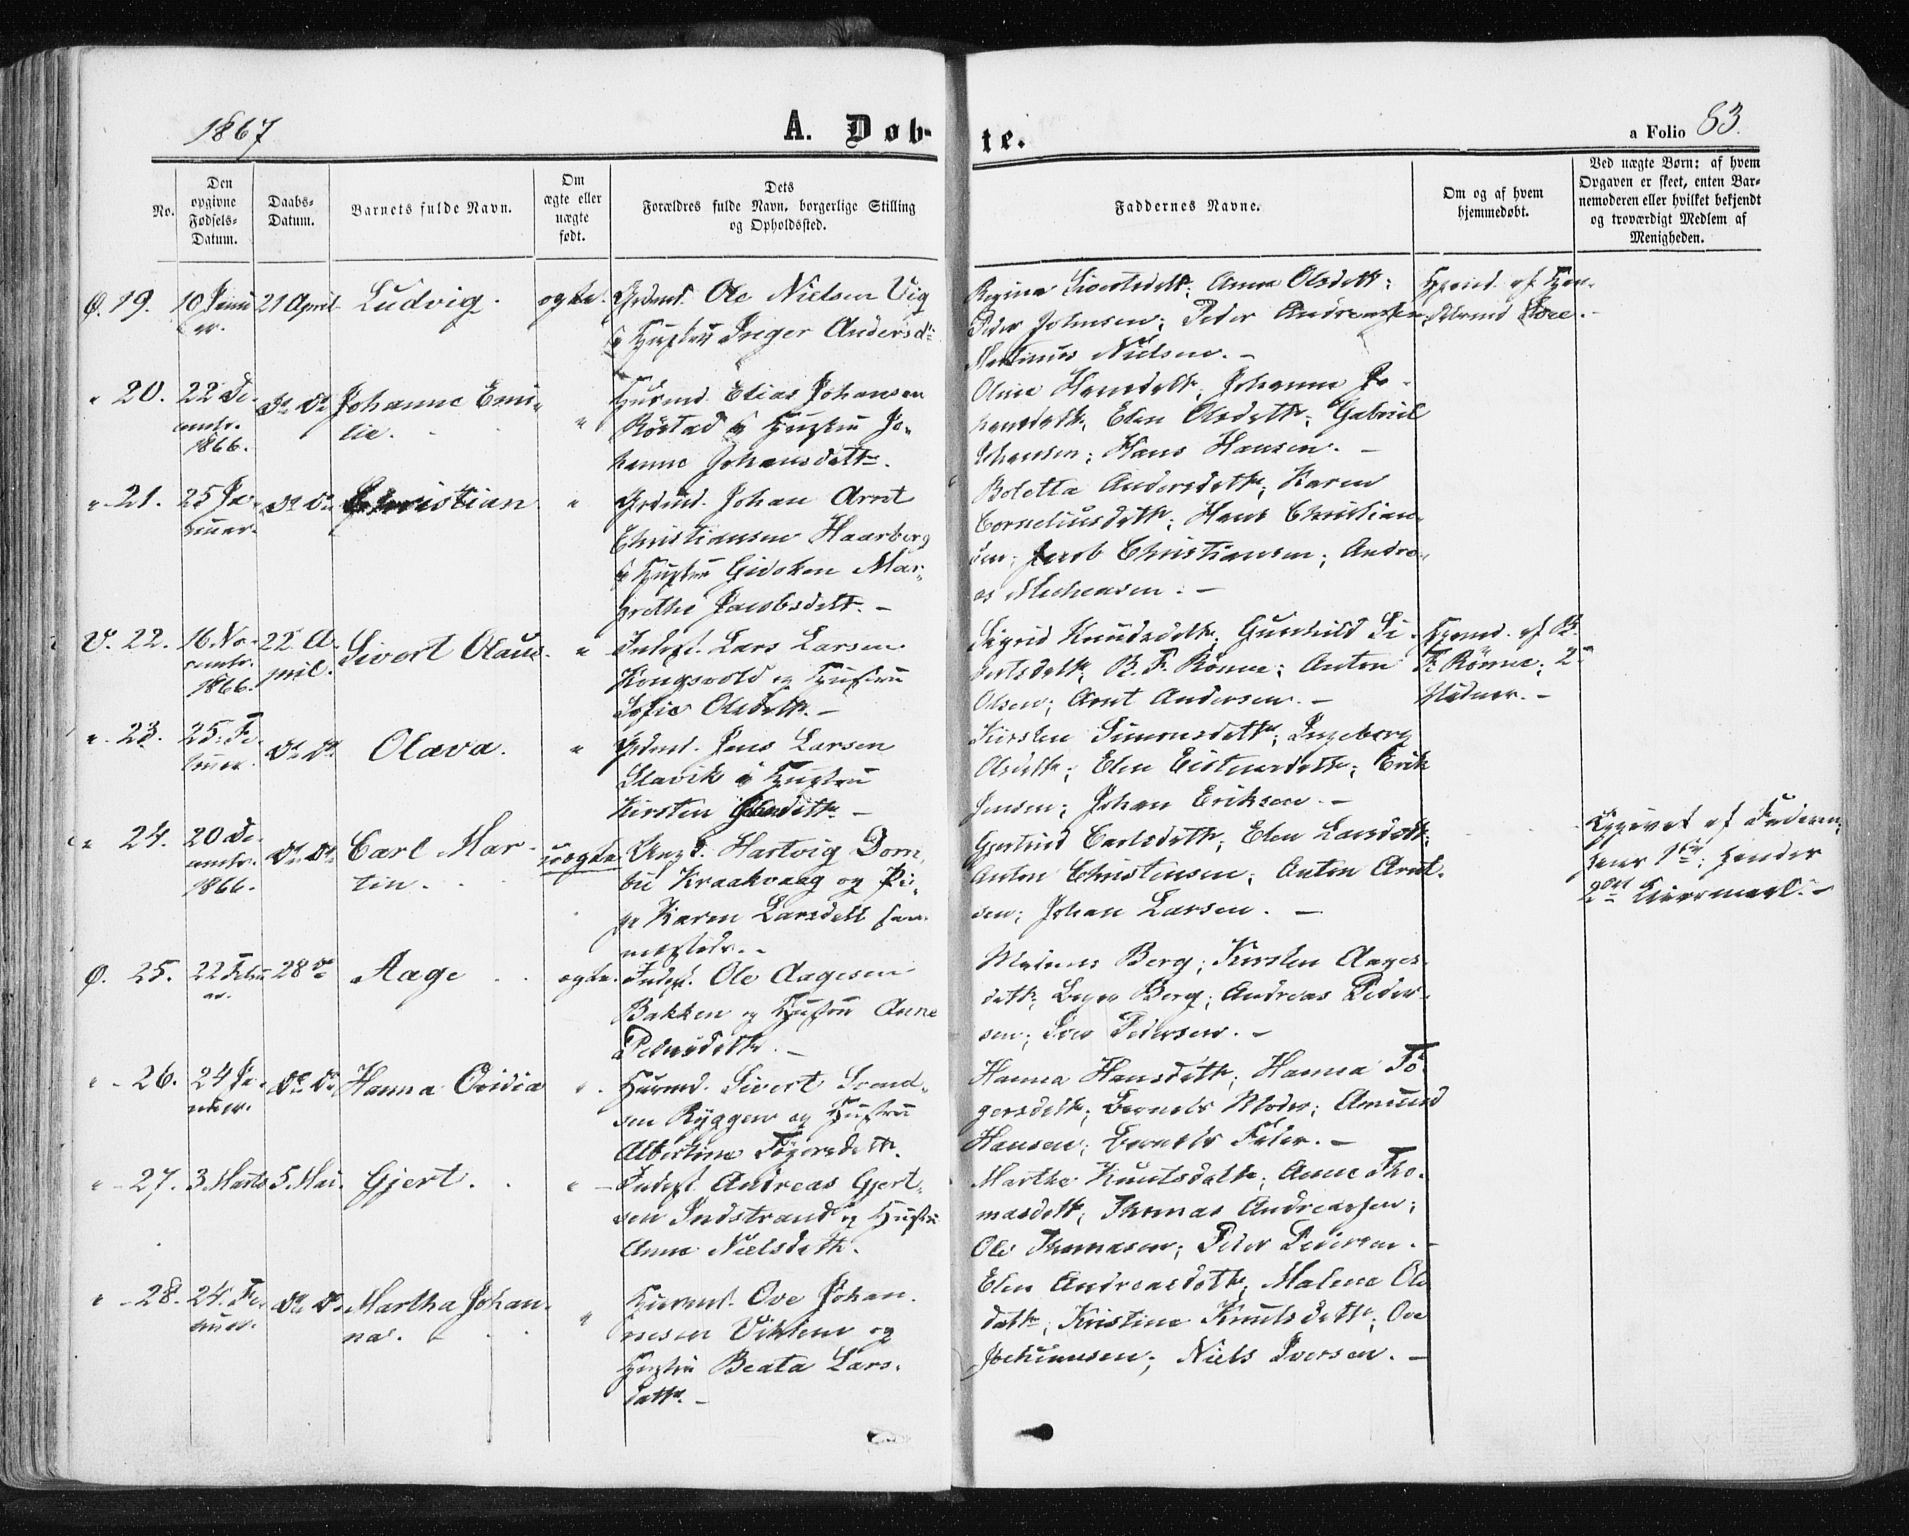 1867
A. Døb-
te.
a Folio 83.
No.
Den
opgivne
Fødsels-
Datum.
Daabs-
Datum.
Barnets fulde Navn.
Om
ægte eller
uægte
født.
Dets
Forældres fulde Navn, borgerlige Stilling
og Opholdssted.
Faddernes Navne.
Om og af hvem
hjemmedøbt.
Ved uægte Børn: af hvem
Opgaven er skeet, enten Bar-
nemoderen eller hvilket bekjendt
og troværdigt Medlem af
Menigheden.
Ø. 19. 10 Janu
ar.
21 April
Ludvig.
ægte.
Grdmd. Ole Nielsen Vig
og Hustru Inger Andersdtr
Regina Sivertsdatt; Anna Olsdatt;
Peder Johnsen; Peder Andreassen;
Martinus Nielsen. -
" 20. 22 De-
cembr.
1866.
Do Do
Johanne Emi-
lie.
"
Husmd. Elias Johansen
Röstad og Hustru Jo-
hanne Johansdatter.
Oline Hansdatt; Johanna Jo-
hansdatt; Elen Olsdatt; Gabriel
Johansen; Hans Hansen. -
" 21. 25 Ja-
nuar.
Do Do
Christian
"
Grdmd. Johan Arnt
Christiansen Haarberg
og Hustru Gidsken Mar-
grethe Jacobsdatt. -
Boletta Andersdatt; Karen
Corneliusdatt; Hans Christian-
sen; Jacob Christiansen; Andre-
as Michelsen. -
V. 22. 16 No-
vembr.
1866.
22 A-
pril.
Sivert Olaus.
"
Inders. Lars Larsen
Kongsvold og Hustru
Sofie Olsdatt. -
Sigrid Knudsdatt; Gunhild Si-
vertsdatt; B. F. Rönne; Anton
Olsen; Arnt Andersen. -
Hjemd. af B.
F. Rönne; 2
Vidner. -
" 23. 25 Fe-
bruar.
Do Do
Olava.
"
Grdmd. Jens Larsen
Slavik og Hustru
Kirsten Olsdatt. -
Kirsten Simonsdatt; Ingeborg
Olsdatt; Elen Eistensdatt; Erik
Jensen; Johan Eriksen. -
" 24. 20 De-
cembr.
1866.
Do Do
Carl Mar-
tin.
uægte
Ungk. Hartvig
Kraakvaag og Pi-
ge Karen Larsdatt sam-
mesteds. -
Gjertrud Carlsdatt; Elen Larsdatt;
Anton Christensen; Anton Arnt-
sen; Johan Larsen. -
Opgivet af Faderen;
hans 1ste; hendes
2det Leiermaal. -
Ø. 25. 22 Febru
ar.
28 Do
Aage
ægte.
Inders. Ole Aagesen
Bakken og Hustru Anne
Pedersdatt. -
Berg; Kirsten Aages-
datt; Berg; Andreas Peder-
sen; Iver Pedersen. -
" 26. 24 Ja-
nuar.
Do Do
Hanna Ovidia
"
Husmd. Sivert Svend-
sen Ryggen og Hustru
Albertine Tögersdatt.
Hanna Hansdatt; Hanna Tö-
gersdatt; Barnets Moder; Amund
Hansen; Barnets Fader. -
" 27. 3 Marts
5 Mai.
Gjert.
"
Inders. Andreas Gjert-
sen Indstrand og Hustru
Anne Nielsdatt.
Martha Knutsdatt; Anne Tho-
masdatt; Thomas Andreassen;
Ole Thomasen; Peter Pedersen. -
" 28. 24 Fe-
bruar.
Do Do
Martha Johan-
na.
"
Husmd. Ove Johan-
nesen Viklem og
Hustru Beata Lars-
datt. -
Elen Andreasdatt; Malene Ols
datt; Kristine Knutsdatt; Ove
Johannesen; Niels Iversen. -